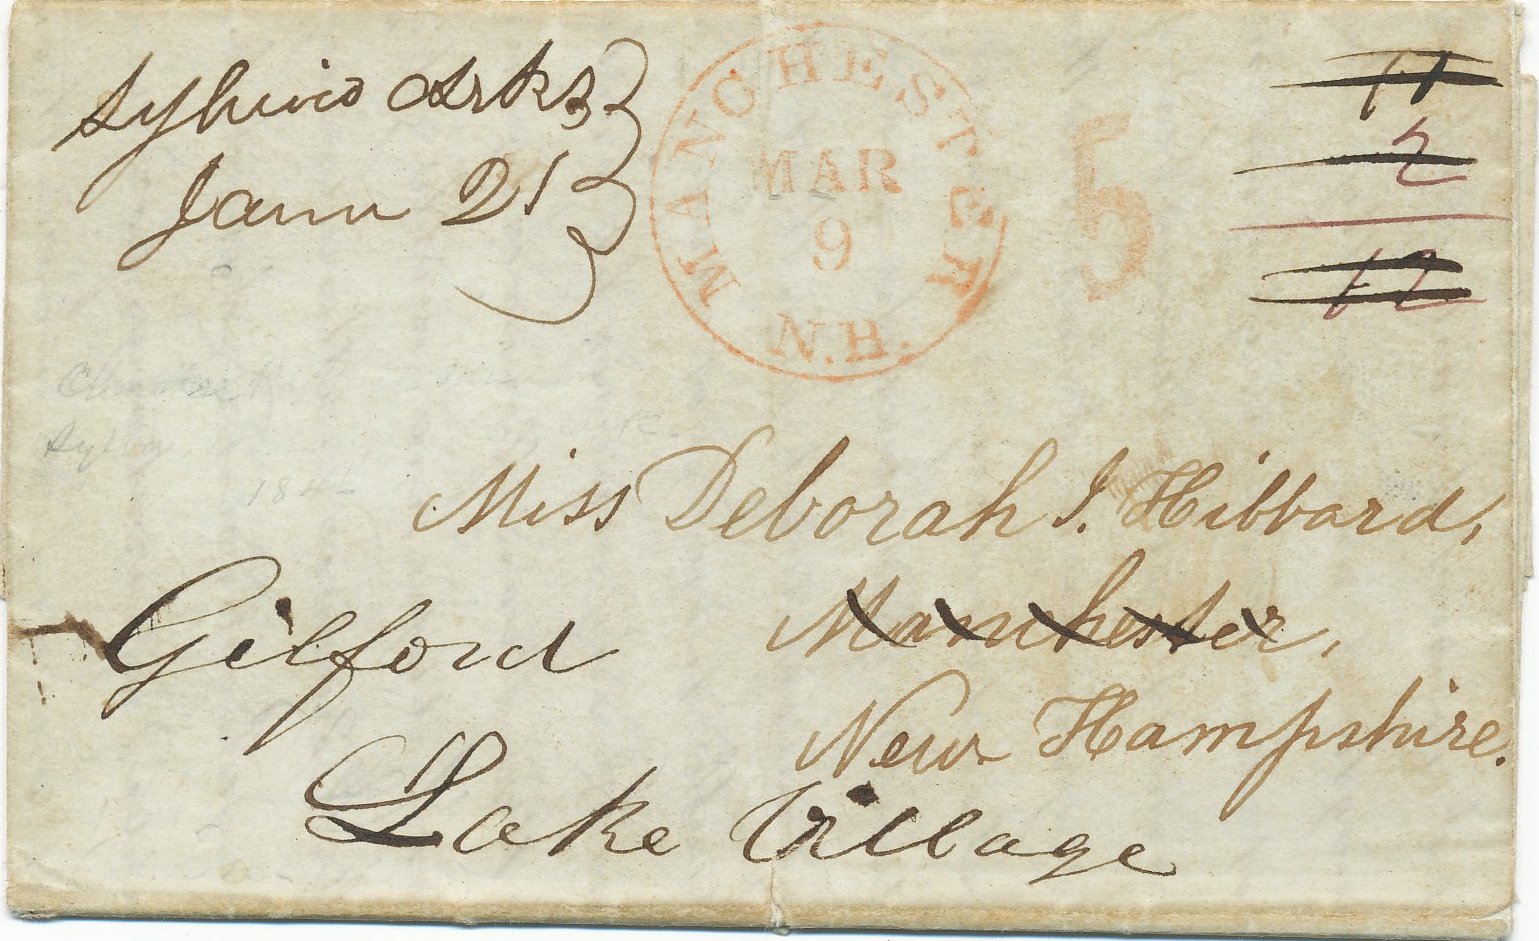 Sylvia Arks
Janu 21
MANCHESTER
MAR
9
N.H.
5
11
2
12
Miss Deborah J. Hibbard,
Manchester,
New Hampshire.
Gilford
Lake Village